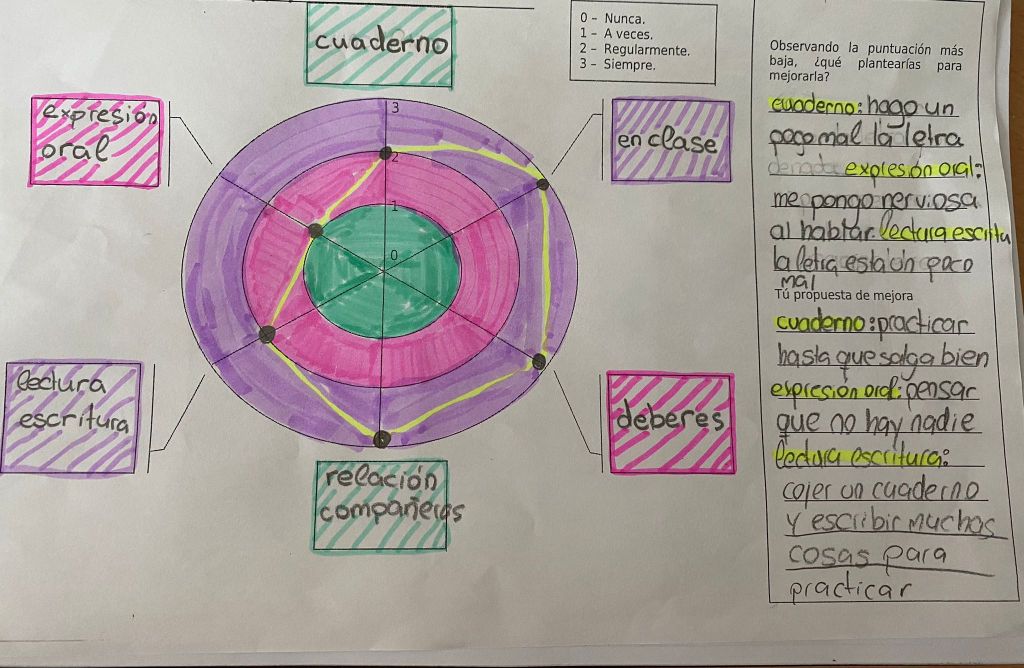 cuaderno
0 – Nunca.
1 – A veces.
2 – Regularmente.
3 – Siempre.
expresión
oral
en clase
3
2
1
0
lectura
escritura
deberes
relación
compañeros
Observando la puntuación más
baja, ¿qué plantearías para
mejorarla?
cuaderno: hago un
poco mal la letra
expresión oral:
me pongo nerviosa
al hablar. lectura escritu
la letra está un poco
mal
Tú propuesta de mejora
cuaderno: practicar
hasta que salga bien
expresión oral: pensar
que no hay nadie
lectura escritura:
cojer un cuaderno
y escribir muchas
cosas para
practicar